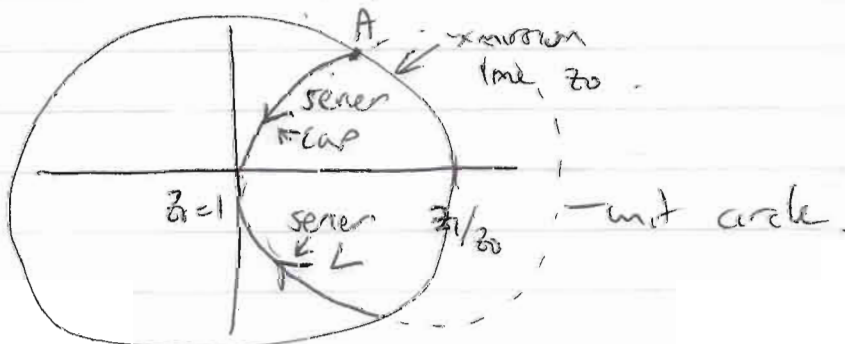 A
xmission
line, Z0.
series
cap
Z1=1
series
L
Z1/Z0
unit circle.